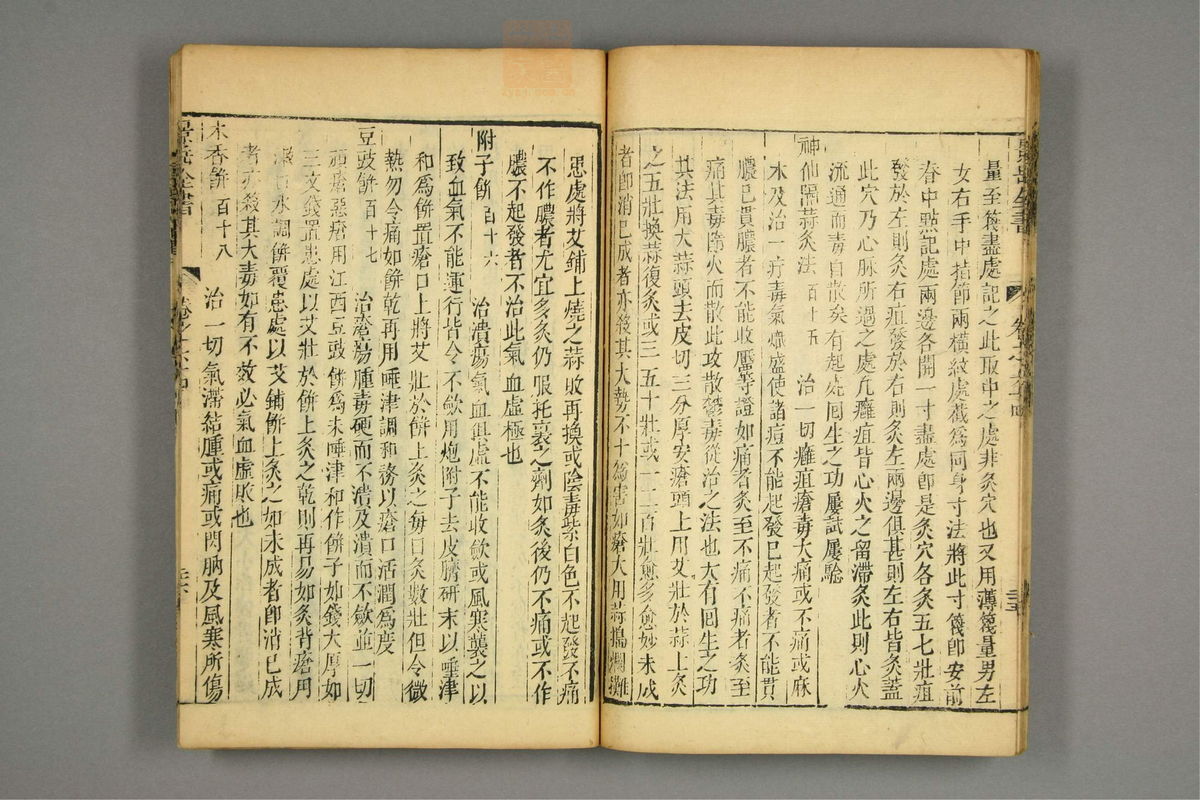 量至篾盡處記之此取中之處非灸穴也又用薄篾量男左
女右手中指節兩橫紋處截為同身寸法將此寸篾卽安前
脊中點記處兩邊各開一寸盡處卽是灸穴各灸五七壯疽
發於左則灸右疽發於右則灸左兩邊俱甚則左右皆灸蓋
此穴乃心脉所過之處凢癰疽皆心火之留滯灸此則心火
流通而毒自散矣有起死囘生之功屢試屢驗
神仙隔蒜灸法 百十五 治一切癰疽瘡毒大痛或不痛或麻
木及治一疔毒氣熾盛使諸痘不能起發巳起發者不能貫
膿巳貫膿者不能收靨等證如痛者灸至不痛不痛者灸至
痛其毒隨火而散此攻散鬱毒從治之法也大有囘生之功
其法用大蒜頭去皮切三分厚安瘡頭上用艾壯於蒜上灸
之五壯換蒜復灸或三五十壯或一二百壯愈多愈妙未成
者卽消巳成者亦殺其大勢不十為害如瘡大用蒜搗爛攤
患處將艾鋪上燒之蒜敗再換或陰毒紫白色不起發不痛
不作膿者尤宜多灸仍服托裏之劑如灸後仍不痛或不作
膿不起發者不治此氣血虛極也
附子餅 百十六 治潰瘍氣血俱虛不能收歛或風寒襲之以
致血氣不能運行皆令不歛用炮附子去皮臍研末以唾津
和為餅置瘡口上將艾壯於餅上灸之每日灸數壯但令微
熱勿令痛如餅乾再用唾津調和務以瘡口活潤為度
豆豉餅 百十七 治瘡瘍腫毒硬而不潰及潰而不歛並一切
頑瘡惡瘡用江西豆豉餅為末唾津和作餅子如錢大厚如
三文錢置患處以艾壯於餅上灸之乾則再易如灸背瘡用
水調餅覆患處以艾鋪餅上灸之如未成者卽消巳成
者亦殺其大毒如有不效必氣血虛敗也
木香餅 百十八 治一切氣滯結腫或痛或閃肭及風寒所傷